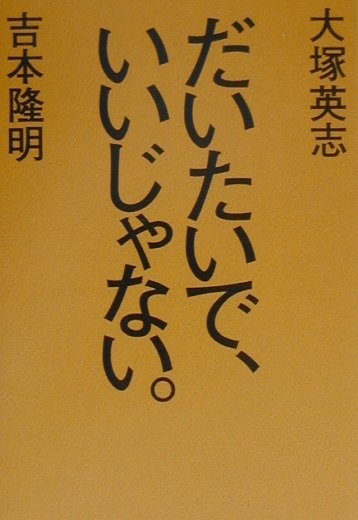 大塚英志
だいたいで、
いいじゃない。
吉本隆明